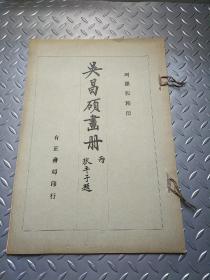 珂羅版精印
吳昌碩畫冊
狄平子題
有正書局印行